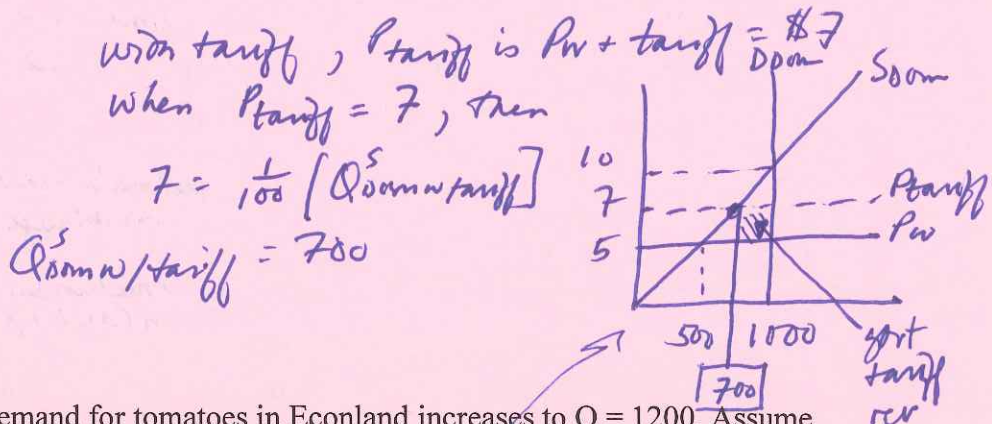 with tariff, Ptariff is Pw + tariff = $7
when Ptariff = 7, then
7 = 1/100 [QSDom w/tariff]
QSDom w/tariff = 700
DDom
SDom
10
7
5
Ptariff
Pw
500 1000
700
govt
tariff
rev
emand for tomatoes in Econland increases to Q = 1200. Assume